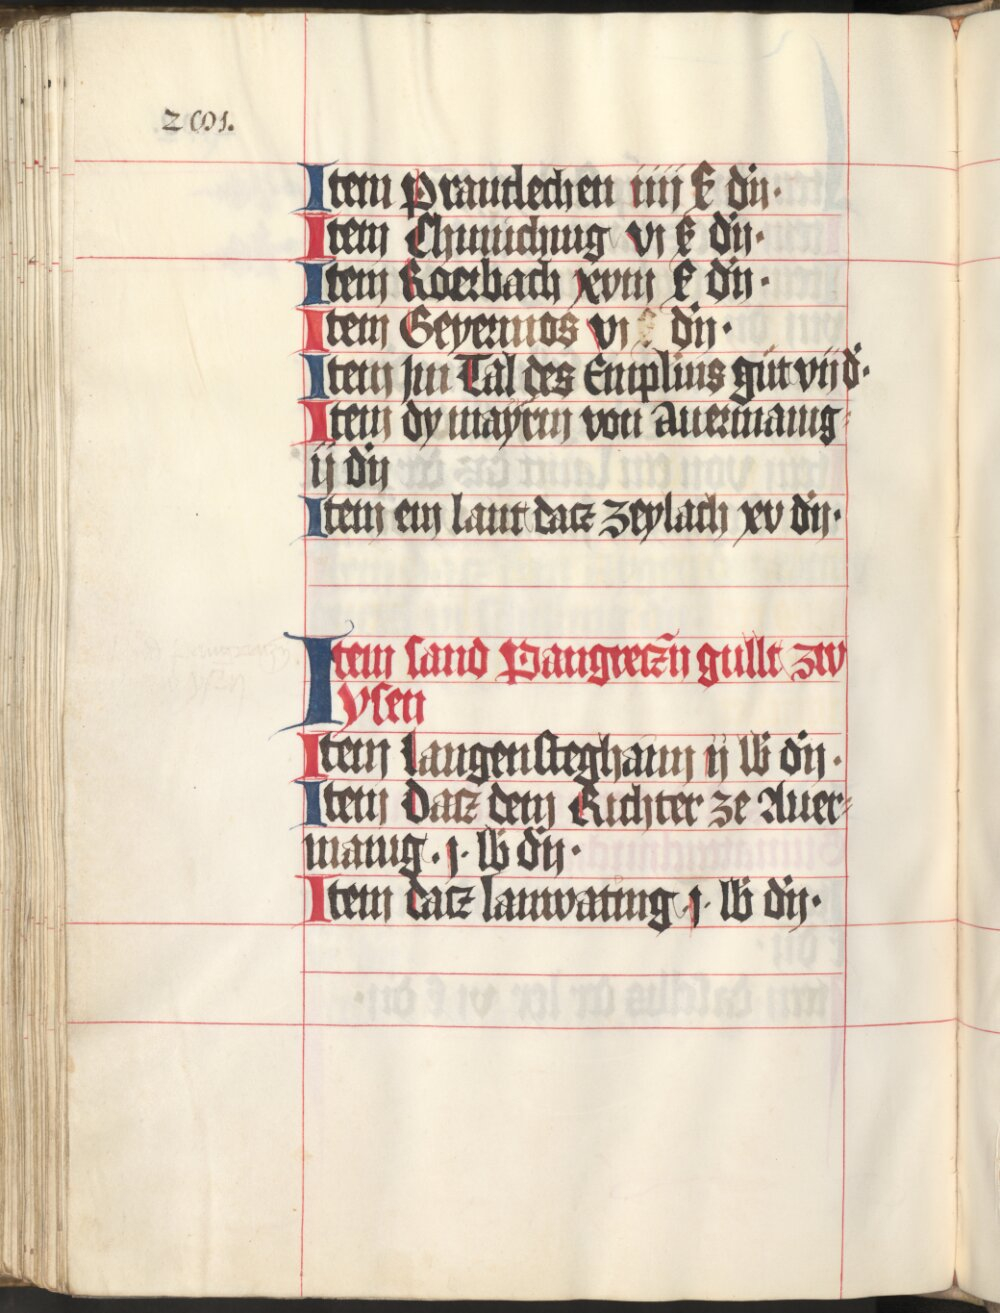 Item Prantlechen iiij ß dn·
Item Chunichung vi ß dn·
Item Roerbach xviii ß dn·
Item Geyermos vi ß dn·
Item Im Tal des Emplins gut vij d·
Item dy mayrin von Auermanig
ij dn
Item ein laut dacz Zeylach xv dn·
Item sand Pangreczn gullt zw
ysen
Item Langensteghaim ij lb dn·
Item Dacz dem Richter ze Auer-
manig · j · lb dn·
Item dacz lanwating · j · lb dn·